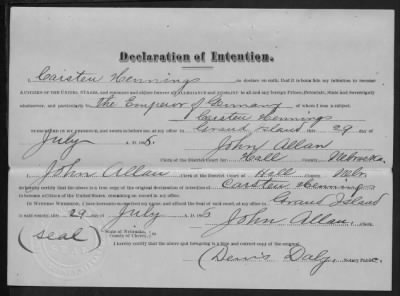 Declaration of Intention.
I, Carsten Hennings do declare on oath, that it is bona fide my intention to become
A CITIZEN OF THE UNITED STATES, and renounce and abjure forever all ALLEGIANCE AND FIDELITY to all and any foreign Prince, Potentate, State and Sovereignty
whatsoever, and particularly to The Emperor of Germany of whom I was a subject.
Carsten Hennings
SUBSCRIBED IN MY PRESENCE, and sworn to before me, at my office in Grand Island this 29 day of
July A. D. 18
John Allan
Clerk of the District Court for Hall County, Nebraska.
I, John Allan Clerk of the District Court of Hall County, Nebr.
do hereby certify that the above is a true copy of the original declaration of intention of Carsten Hennings
to become a Citizen of the United States, remaining on record in my office.
IN WITNESS WHEREOF, I have hereunto subscribed my name, and affixed the Seal of said court, at my office in Grand Island
in said county, this 29 day of July A. D. 18
John Allan, Clerk.
(seal)
State of Nebraska,
County of Cherry,
I hereby certify that the above and foregoing is a true and correct copy of the original.
(Denis Daly, Notary Public.